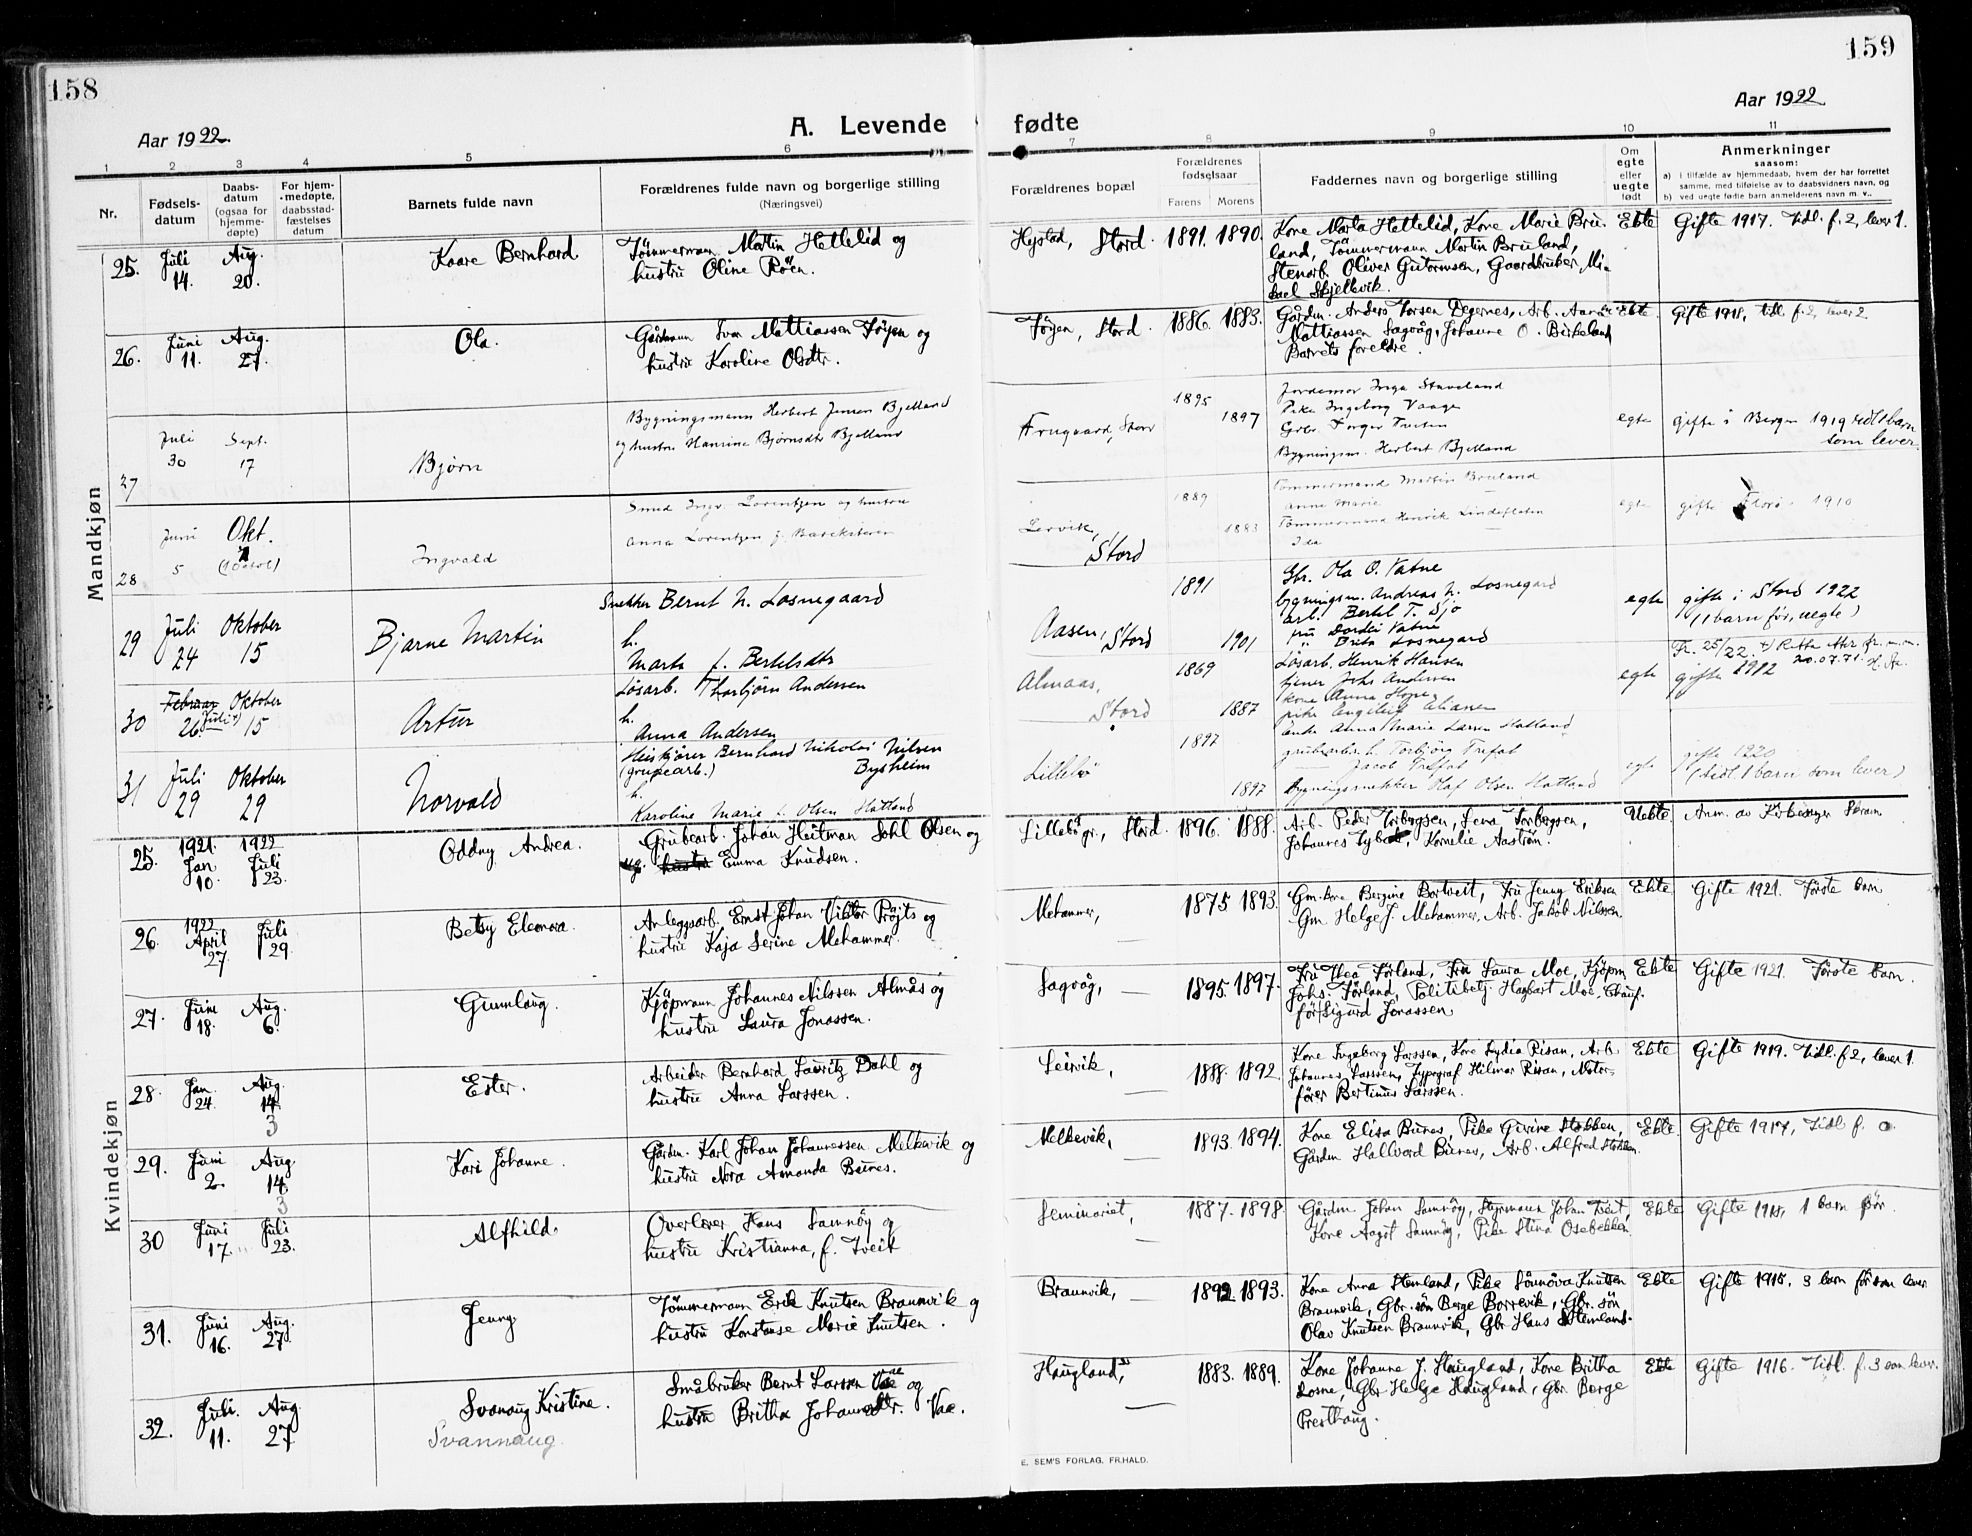 158
Aar 1922.
A. Levende
1 2 3 4 5 6
Nr.
Fødsels-
datum
Daabs-
datum
(ogsaa for
hjemme-
døpte)
For hjem-
-medøpte,
daabsstad-
fæstelses
datum
Barnets fulde navn
Forældrenes fulde navn og borgerlige stilling
(Næringsvei)
Mandkjøn
25. Juli 14. Aug. 20. Kaare Bernhard
Tömmermann Martin Hettelid og
hustru Oline Röen.
26. Juni 11. Aug. 27. Ola.
Gårdmann Mattiassen Töyen og
hustru Karoline Olsdtr.
27 Juli 30 Sept. 17 Bjørn
Bygningsmann Herbert Jensen Bjelland
og hustru Hansine Bjørnsdtr Bjelland
28 Juni 5 Okt. Ingvald
Smed Ingv. Lorentzen og hustru
Anna Lorentzen f.
29 Juli 24 Oktober 15 Bjarne Martin
Snekker Bernt N. Losnegaard
h.
Marta f. Bertelsdtr
30 Februar 26. Juli +) Oktober 15 Artur
Løsarb. Thorbjørn Andersen
h.
Anna Andersen
31 Juli 29 Oktober 29 Norvald
Heiskjører Bernhard Nikolai Nilsen
(grubearb.) Bysheim
h.
Karoline Marie f. Olsen Hatland
Kvindekjøn
25. 1921. Jan. 10. 1922 Juli 23. Oddny Andrea.
Grubearb. Johan Heitman Dahl Olsen og
ug. hustru Emma Knudsen.
26. 1922 April 27 Juli 29. Betsy Eleonora.
Anleggsarb. Ernst Johan Viktor Fröjts og
hustru Kaja Serine Mehammer.
27. Juni 18. Aug. 6. Gunnlaug.
Kjöpmann Johannes Nilssen Almås og
hustru Laura Jonassen.
28. Jan. 24. Aug. 14 3 Ester.
Arbeider Bernhard Lauritz Dahl og
hustru Anna Larssen.
29. Juni 2 Aug. 14. 3 Kari Johanne.
Gårdm. Karl Johan Johannessen Melkevik og
hustru Nora Amanda Bunes.
30 Juni 17. Juli 23. Alfhild.
Overlærer Hans Samnöy og
hustru Kristianna, f. Tveit
31. Juni 16. Aug. 27. Jenny
Tömmermann Erik Knutsen Braunvik og
hustru Konstanse Marie Knutsen.
32. Juli. 11. Aug. 27 Svanaug Kristine.
Svannaug.
Småbruker Bernt Larssen Vae og
hustru Britha Johannesdtr. Vae.
159
Aar 1922
fødte
7 8 9 10 11
Forældrenes bopæl
Forældrenes
fødselsaar
Farens Morens
Faddernes navn og borgerlige stilling
Om
egte
eller
uegte
født
Anmerkninger
saasom:
a) i tilfælde av hjemmedaab, hvem der har forrettet
samme, med tilføielse av to daabsvidners navn, og
b) ved uegte fødte barn anmelderens navn m. v..
Hystad, Stord. 1891. 1890.
Kone Marta Hettelid, Kone Marie Bru-
land, Tömmermann Martin Bruland,
Stenarb. Oliver Gutormsen, Gaardbruker Mi-
kael Skjellevik.
Ekte Gifte 1917. Tidl. f. 2, lever 1.
Töyen, Stord. 1886. 1883.
Gårdm. Anders Larsen Degernes, Arb.
Mattiassen Sagvåg, Johanne O. Birkeland
Barnets foreldre.
Ekte Gifte 1918, tidl. f. 2, lever 2
Frugaard, Stord 1895 1897
Jordemor Inga Staveland
Pike Ingeborg Vaage
Gbr. Torger
Bygningsm. Herbert Bjelland
egte gifte i Bergen 1919 tidl 1 barn
som lever
Lervik, Stord 1889 1883
Tømmermand Martin Bruland
Anna Marie
Tømmermand Henrik Lindefloten
Ida
egte gifte Florö 1910
Aasen, Stord 1891 1901
Gbr. Ola O. Vatne
bygningsm. Andreas N. Losnegard
arb. Bertel T. Sjo
fru Dordei Vatne
" Brita Losnegard
egte gifte i Stord 1922
(1 barn før, uegte)
Almaas, Stord 1869 1887
Løsarb. Henrik Hansen
tjener Johs Andersen
kone Anna Hope
egte Fr. 25/22. +) Retta
20.07.71.
gifte 1912
Lillebö 1897 1897
enke Anna Marie Larsen Hatland
grubearb. h. Torbjørg Trefal
Jacob Trefal
Bygningssnekker Olaf Olsen Hatland
egte gifte 1920
(tidl 1 barn som lever)
Lillebö gr., Stord. 1896. 1888.
Arb. Peder Torbergsen, Lena Torbergsen,
Johannes, Kornelie Aaström.
Uekte Anm. av Kirkesanger Skram
Mehammer, — 1875 1893.
Gm. kone Bergine Bortveit, Fru Jenny Eriksen
Gm Helge J. Mehammer, Arb. Jakob Nilssen.
Ekte Gifte 1921. Første barn
Sagvåg, — 1895. 1897.
Fru Thea Förland, Fru Laura Moe, Kjöpm
Johs. Förland, Politibetj. Hagbart Moe, Chauf-
för Sigurd Jonassen
Ekte Gifte 1921. Første barn.
Leirvik, — 1888. 1892.
Kone Ingeborg Larssen, Kone Lydia Risan, Arb.
Johannes Larssen, Typograf Hilmar Risan, Motor-
förer Bertinus Larssen.
Ekte Gifte 1919. Tidl. f 2, lever 1.
Melkevik, — 1893. 1894.
Kone Elisa Bunes, Pike Givine Stokken,
Gårdm Hallvard Bunes, Arb. Alfred Stokken.
Ekte Gifte 1917, Tidl f. 0
Seminariet, — 1887. 1898
Gårdm Johan Samnöy, Styrmann Johan Tveit,
Kone Aagot Samnöy, Pike Stina Osebakken.
Ekte Gifte 1918, 1 barn för.
Braunvik, — 1892. 1893.
Kone Anna Stemland, Pike Sönnöva Knutsen
Braunvik, Gbr. sön Berge Borrevik, Gbr. sön
Olav Knutsen Braunvik, Gbr Hans Stemland.
Ekte Gifte 1915. 3 barn för som lever
Haugland, — 1883. 1889.
Kone Johanne J. Haugland, Kone Britha
Losne, Gbr Helge Haugland, Gbr. Berge
Presthaug.
Ekte Gifte 1916. Tidl. f. 3 som lever.
E. SEM'S FORLAG, FR.HALD.